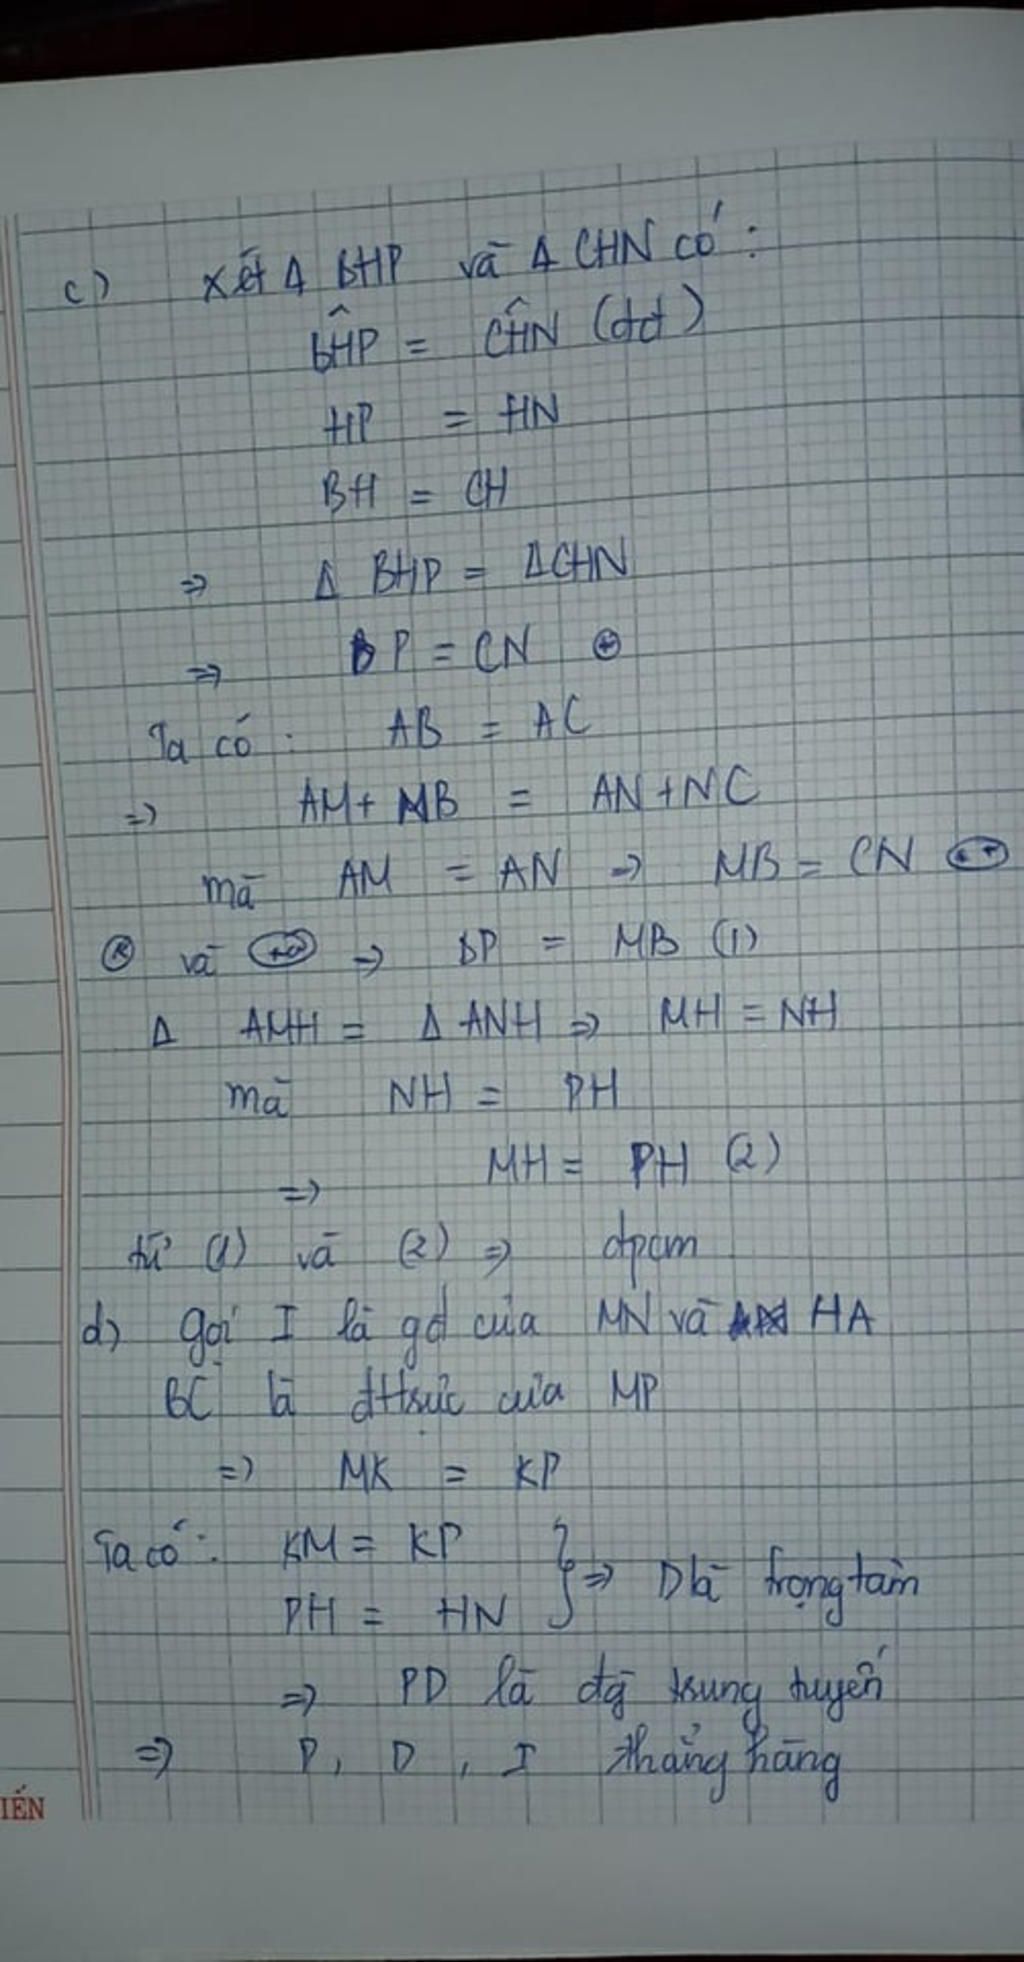 c) Xét Δ BHP và Δ CHN có:
BĤP = CĤN (đđ)
HP = HN
BH = CH
=> Δ BHP = ΔCHN
=> BP = CN (*)
Ta có: AB = AC
=> AM + MB = AN + NC
mà AM = AN => MB = CN (**)
(*) và (**) => BP = MB (1)
Δ AMH = Δ ANH => MH = NH
mà NH = PH
=> MH = PH (2)
từ (1) và (2) => đpcm
d) gọi I là gđ của MN và HA
BC là đttrực của MP
=> MK = KP
Ta có: KM = KP
PH = HN } => D là trọng tâm
=> PD là đg trung tuyến
=> P, D, I thẳng hàng
IẾN